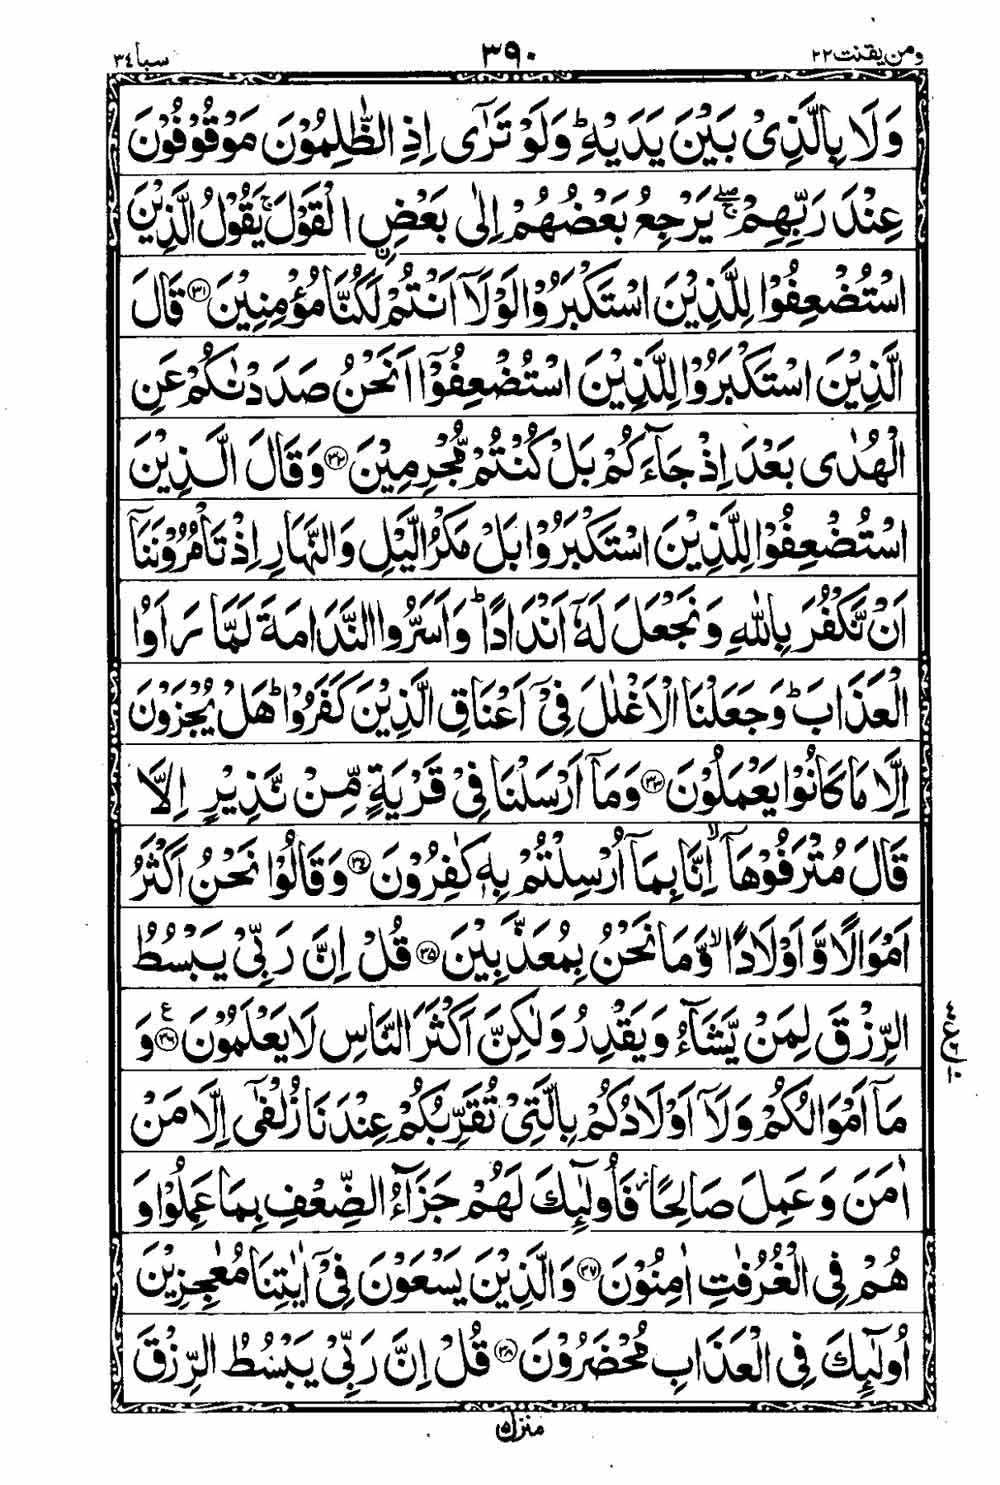 ومن يقنت ٢٢ ٣٩٠ سبا ٣٤
وَلَا بِالَّذِىْ بَيْنَ يَدَيْهِ ؕ وَلَوْ تَرٰٓى اِذِ الظّٰلِمُوْنَ مَوْقُوْفُوْنَ
عِنْدَ رَبِّهِمْ ۖۚ يَرْجِعُ بَعْضُهُمْ اِلٰى بَعْضِ اۨلْقَوْلَ ۚ يَقُوْلُ الَّذِيْنَ
اسْتُضْعِفُوْا لِلَّذِيْنَ اسْتَكْبَرُوْا لَوْلَاۤ اَنْتُمْ لَكُنَّا مُؤْمِنِيْنَ ﴿۳۱﴾ قَالَ
الَّذِيْنَ اسْتَكْبَرُوْا لِلَّذِيْنَ اسْتُضْعِفُوْۤا اَنَحْنُ صَدَدْنٰكُمْ عَنِ
الْهُدٰى بَعْدَ اِذْ جَآءَكُمْ بَلْ كُنْتُمْ مُّجْرِمِيْنَ ﴿۳۲﴾ وَقَالَ الَّذِيْنَ
اسْتُضْعِفُوْا لِلَّذِيْنَ اسْتَكْبَرُوْا بَلْ مَكْرُ الَّيْلِ وَالنَّهَارِ اِذْ تَاْمُرُوْنَنَاۤ
اَنْ نَّكْفُرَ بِاللّٰهِ وَنَجْعَلَ لَهٗۤ اَنْدَادًا ؕ وَاَسَرُّوا النَّدَامَةَ لَمَّا رَاَوُا
الْعَذَابَ ؕ وَجَعَلْنَا الْاَغْلٰلَ فِىْۤ اَعْنَاقِ الَّذِيْنَ كَفَرُوْا ؕ هَلْ يُجْزَوْنَ
اِلَّا مَا كَانُوْا يَعْمَلُوْنَ ﴿۳۳﴾ وَمَاۤ اَرْسَلْنَا فِىْ قَرْيَةٍ مِّنْ نَّذِيْرٍ اِلَّا
قَالَ مُتْرَفُوْهَاۤ ۙ اِنَّا بِمَاۤ اُرْسِلْتُمْ بِهٖ كٰفِرُوْنَ ﴿۳۴﴾ وَقَالُوْا نَحْنُ اَكْثَرُ
اَمْوَالًا وَّاَوْلَادًا ۙ وَّمَا نَحْنُ بِمُعَذَّبِيْنَ ﴿۳۵﴾ قُلْ اِنَّ رَبِّىْ يَبْسُطُ
الرِّزْقَ لِمَنْ يَّشَآءُ وَيَقْدِرُ وَلٰكِنَّ اَكْثَرَ النَّاسِ لَا يَعْلَمُوْنَ ﴿۳۶﴾ ع وَ
مَاۤ اَمْوَالُكُمْ وَلَاۤ اَوْلَادُكُمْ بِالَّتِىْ تُقَرِّبُكُمْ عِنْدَنَا زُلْفٰٓى اِلَّا مَنْ
اٰمَنَ وَعَمِلَ صَالِحًا فَاُولٰٓئِكَ لَهُمْ جَزَآءُ الضِّعْفِ بِمَا عَمِلُوْا وَ
هُمْ فِى الْغُرُفٰتِ اٰمِنُوْنَ ﴿۳۷﴾ وَالَّذِيْنَ يَسْعَوْنَ فِىْۤ اٰيٰتِنَا مُعٰجِزِيْنَ
اُولٰٓئِكَ فِى الْعَذَابِ مُحْضَرُوْنَ ﴿۳۸﴾ قُلْ اِنَّ رَبِّىْ يَبْسُطُ الرِّزْقَ
منزل ٥